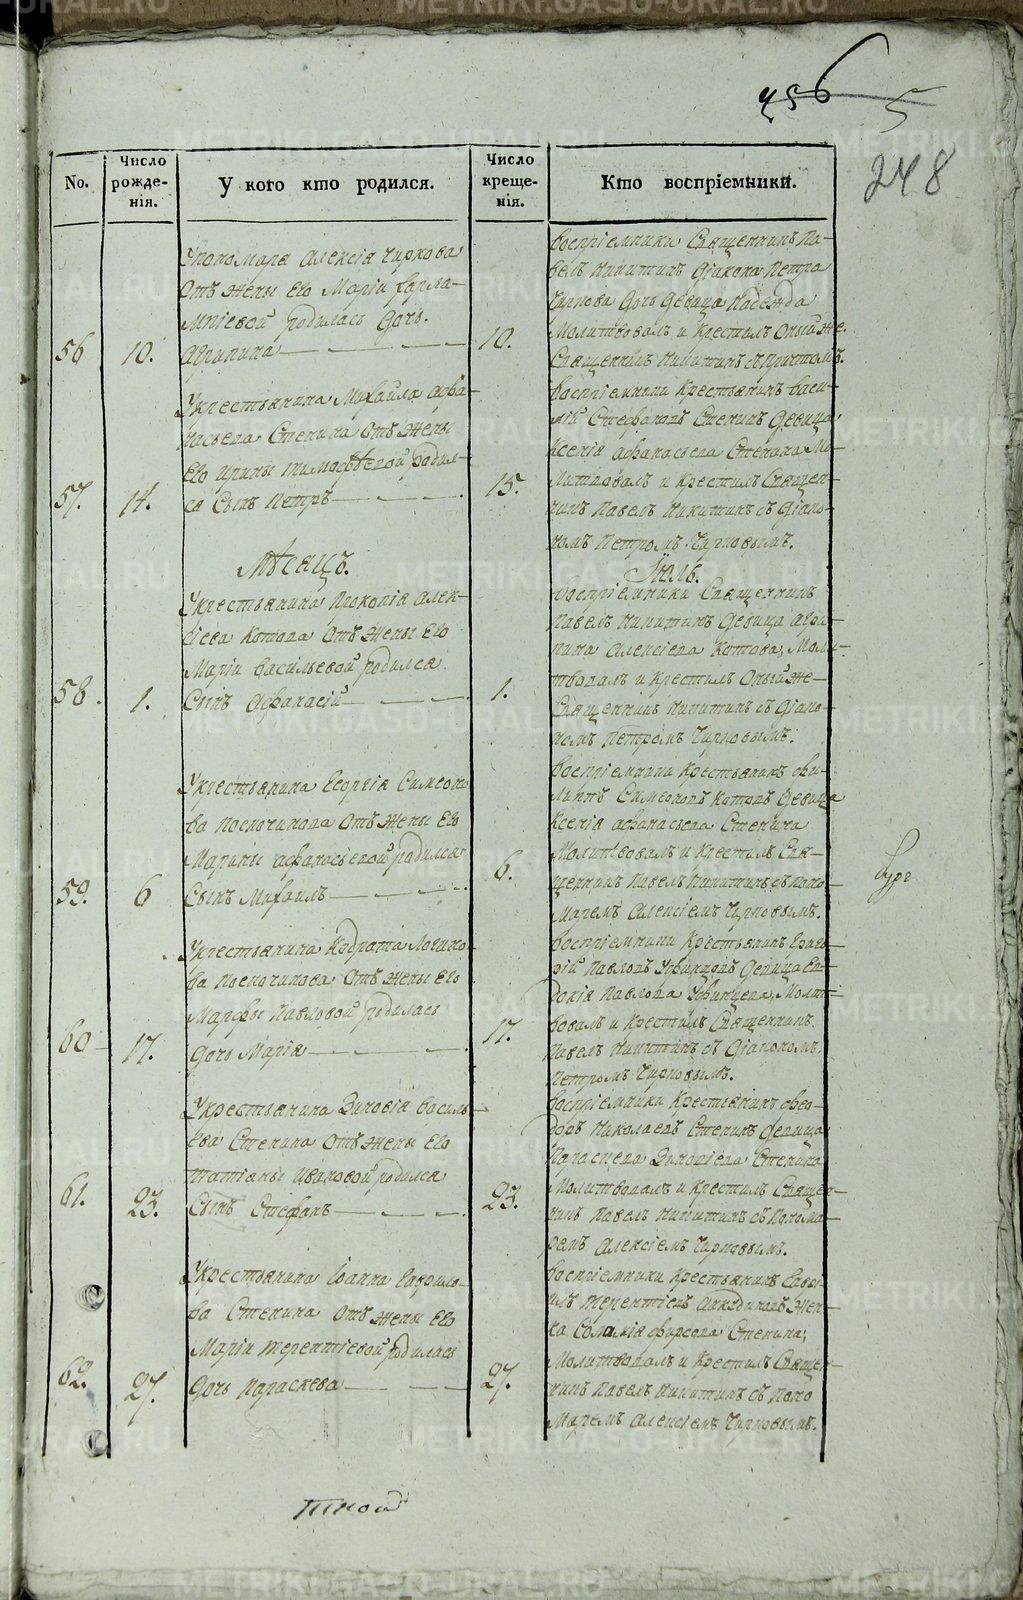 456 5
248
No.
Число рожде-нія.
У кого кто родился.
Число креще-нія.
Кто воспріемники.
Упономаря Алексія Чиркова
Отъ Жены Его Маріи Харла-
мпіевой родилась Дочь
56 10. Агрипина
10.
Воспріемники Священникъ Па-
велъ Никитинъ Діакона Петра
Чиркова Дочь Девица Надежда
Молитвовалъ и Крестилъ Оный же
Священникъ Никитинъ съ Причтомъ.
Укрестьянина Михайла Афа-
насьева Степина Отъ Жены
Его Ирины Тимофѣевой родил-
57. 14. ся Сынъ Петръ
15.
Воспріемники Крестьянинъ Васи-
лій Стефановъ Степинъ Девица
Ксенія Афанасьева Степина Мо-
литвовалъ и Крестилъ Священ-
никъ Павелъ Никитинъ съ Діако-
номъ Петромъ Чирковымъ.
Мѣсяцъ. Іюль.
Укрестьянина Прокопія Алек-
сіева Котова Отъ Жены Его
Маріи Васильевой родился
58. 1. Сынъ Афанасій
1.
Воспріемники Священникъ
Павелъ Никитинъ Девица Агри-
пина Алексіева Котова, Моли-
твовалъ и Крестилъ Оный же
Священникъ Никитинъ съ Діако-
номъ Петромъ Чирковымъ.
Укрестьянина Георгія Симеоно
ва Поскочинова Отъ Жены Его
Марины Афанасіевой родился
59. 6 Сынъ Михаилъ
6.
Воспріемники Крестьянинъ Фи-
липъ Симеоновъ Котовъ Девица
Ксенія Афанасьева Степина
Молитвовалъ и Крестилъ Свя-
щенникъ Павелъ Никитинъ съ Поно-
маремъ Алексіемъ Чирковымъ.
Укрестьянина Кодрата Логино-
ва Поскочинова Отъ Жены Его
Марфы Павловой родилась
60 17. Дочь Марія
17.
Воспріемники Крестьянинъ Григо-
рій Павловъ Девица Ев-
докія Павлова Молит-
вовалъ и Крестилъ Священникъ
Павелъ Никитинъ съ Діакономъ
Петромъ Чирковымъ.
Укрестьянина Зиновія Василь-
ева Степина Отъ Жены Его
Татіаны Ивановой родился
61. 23. Сынъ Стефанъ
23.
Воспріемники Крестьянинъ Фео-
доръ Николаевъ Степинъ Девица
Параскева Зиновіева Степина
Молитвовалъ и Крестилъ Священ-
никъ Павелъ Никитинъ съ Понома-
ремъ Алексіемъ Чирковымъ.
Укрестьянина Іоанна Гаврило-
ва Степина Отъ Жены Его
Маріи Терентіевой родилась
62. 27. Дочь Параскева
27.
Воспріемники Крестьянинъ
Терентіевъ Жен-
ка Соломія Фирсова Степина,
Молитвовалъ и Крестилъ Священ-
никъ Павелъ Никитинъ съ Поно
маремъ Алексіемъ Чирковымъ.
METRIKI.GASO-URAL.RU